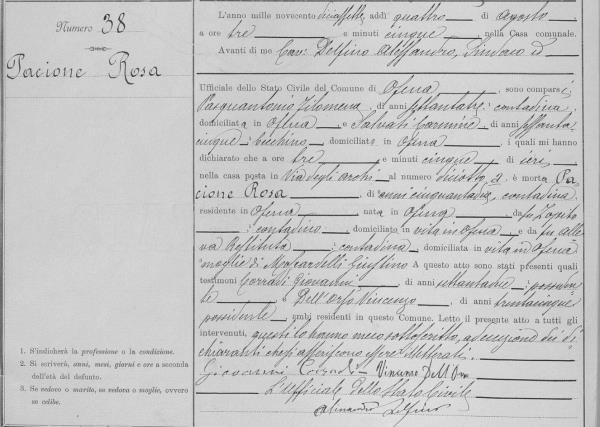 Numero 38
Pacione Rosa
1. S'indicherà la professione o la condizione.
2. Si scriverà, anni, mesi, giorni e ore a seconda
dell'età del defunto.
3. Se vedovo o marito, se vedova o moglie, ovvero
se celibe.
L'anno mille novecento diciassette, addì quattro di Agosto,
a ore tre e minuti cinque, nella Casa comunale.
Avanti di me Cav: Delfino Alessandro, Sindaco ed
Ufficiale dello Stato Civile del Comune di Ofena, sono comparsi
Pasquantonio Filomena, di anni settantatre: contadina
domiciliata in Ofena, e Salvati Carmine, di anni settanta-
cinque: becchino, domiciliato in Ofena, i quali mi hanno
dichiarato che a ore tre e minuti cinque di ieri,
nella casa posta in Via degli archi al numero diciotto, è morta Pa
cione Rosa, di anni cinquantadue, contadina
residente in Ofena, nata in Ofena, da fu Zopito
: contadino, domiciliato in vita in Ofena, e da fu
Restituta: contadina, domiciliata in vita in Ofena
moglie di Moscardelli Giustino A questo atto sono stati presenti quali
testimoni Corradi Giovanni, di anni settantadue: possiden
te, e Dell'Orso Vincenzo, di anni trentacinque
possidente, ambi residenti in questo Comune. Letto il presente atto a tutti gli
intervenuti, questi lo hanno meco sottoscritto, ad eccezione dei di
chiaranti che si asseriscono essere illetterati.
Giovanni Corradi Vincenzo Dell'Orso
L'Ufficiale dello Stato Civile
Alessandro Delfino